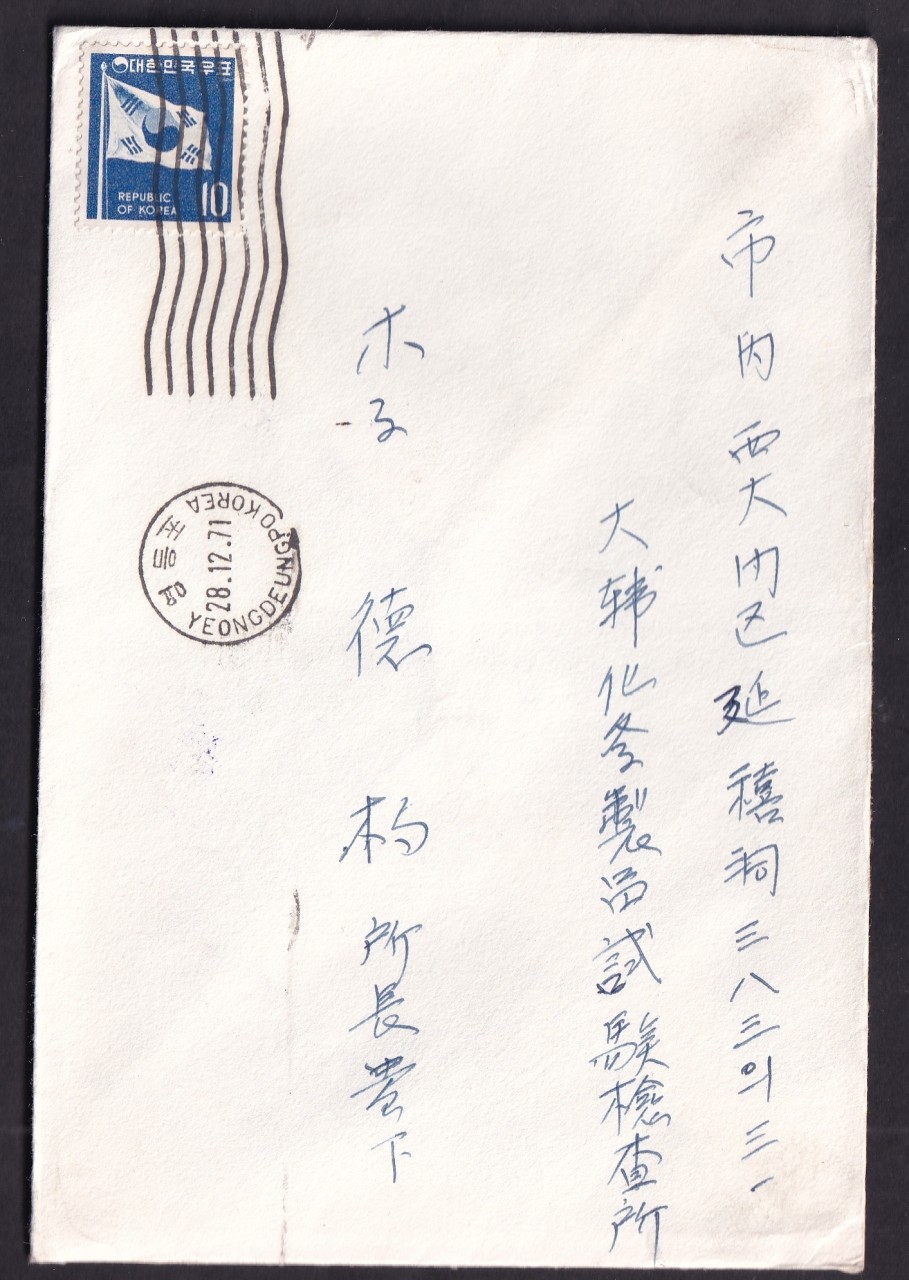 대한민국우표
REPUBLIC
OF KOREA
10
市内西大门区延禧洞三八三의三一
大韓化学製品試験檢査所
李德杓所長貴下
영등포
YEONGDEUNGPO KOREA
28.12.71